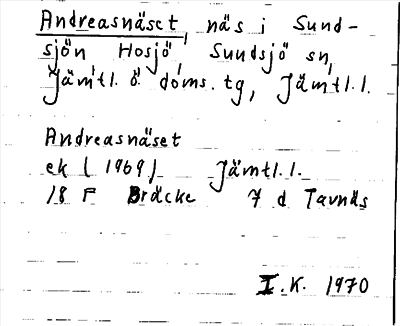 Andreasnäset, näs i Sund-
sjön, Hosjö, Sundsjö sn,
Jämtl. ö. doms. tg, Jämtl. l.
Andreasnäset
ek (1969) Jämtl. l.
18 F Bräcke 7 d Tavnäs
I.K. 1970